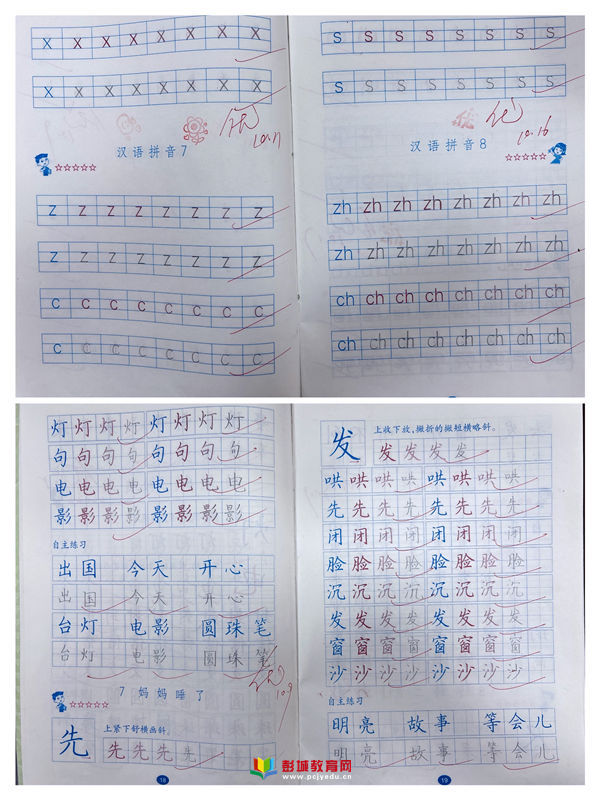 x x x x x x x x
x x x x x x x x
优
10.11
汉语拼音7
☆☆☆☆☆
z z z z z z z z
z z z z z z z z
c c c c c c c c
c c c c c c c c
s s s s s s s s
s s s s s s s s
优
10.16
汉语拼音8
☆☆☆☆☆
zh zh zh zh zh zh zh zh
zh zh zh zh zh zh zh zh
ch ch ch ch ch ch ch ch
ch ch ch ch ch ch ch ch
灯 灯 灯 灯 灯 灯 灯 灯
句 句 句 句 句 句 句 句
电 电 电 电 电 电 电 电
影 影 影 影 影 影 影 影
自主练习
出国 今天 开心
出国 今天 开心
台灯 电影 圆珠笔
台灯 电影 圆珠笔
10.9
7 妈妈睡了
☆☆☆☆☆
先
上紧下舒横画斜。
先 先 先 先 先
18
发
上收下放,撇折的撇短横略斜。
发 发 发 发
哄 哄 哄 哄 哄 哄 哄 哄
先 先 先 先 先 先 先 先
闭 闭 闭 闭 闭 闭 闭 闭
脸 脸 脸 脸 脸 脸 脸 脸
沉 沉 沉 沉 沉 沉 沉 沉
发 发 发 发 发 发 发 发
窗 窗 窗 窗 窗 窗 窗 窗
沙 沙 沙 沙 沙 沙 沙 沙
自主练习
明亮 故事 等会儿
明亮 故事 等会儿
19
彭城教育网
www.pcjyedu.cn